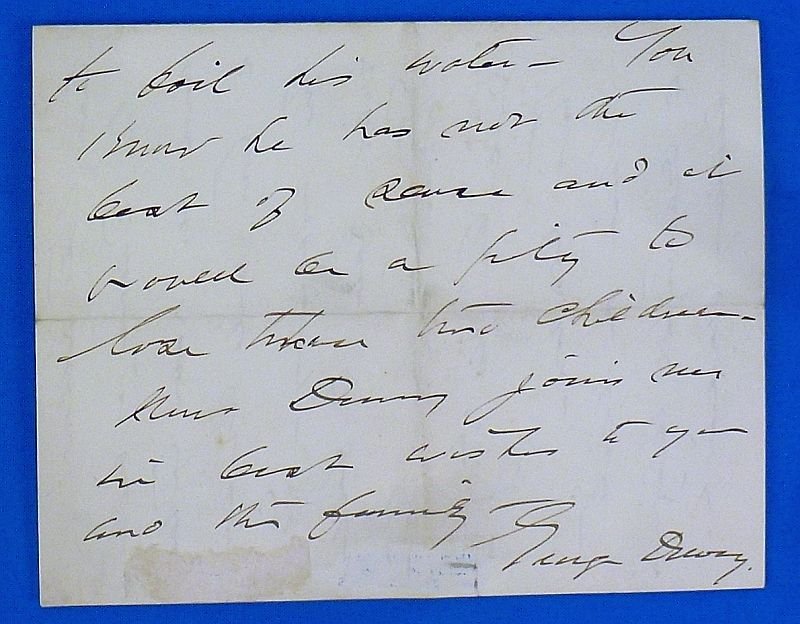 to boil his water – You
know he has not the
best of sense and it
would be a pity to
lose those two children –
Mrs Dewey joins me
in best wishes to you
and the family
George Dewey.